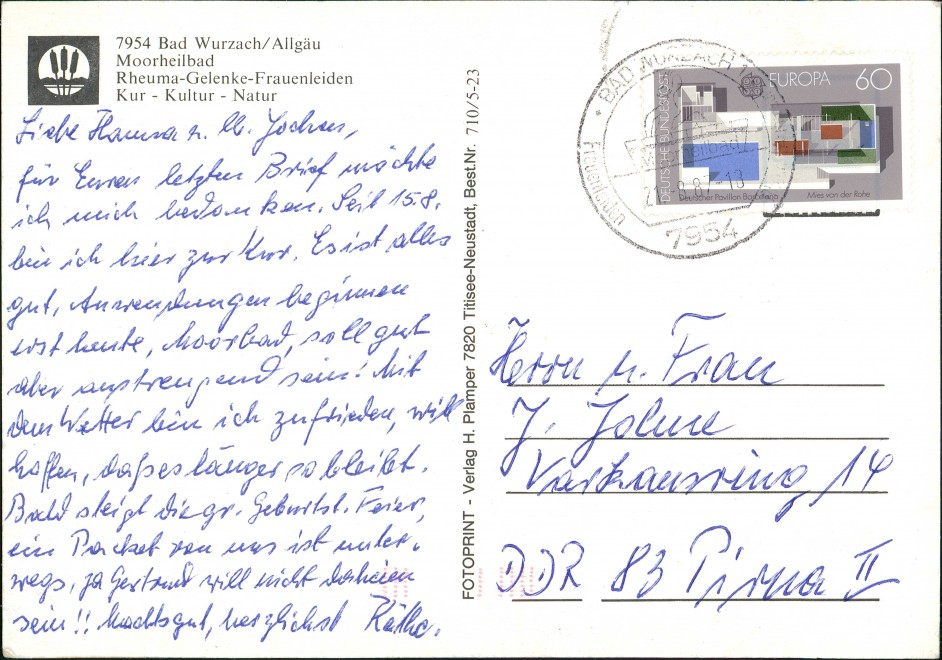 7954 Bad Wurzach/Allgäu
Moorheilbad
Rheuma-Gelenke-Frauenleiden
Kur - Kultur - Natur
Liebe Hanna u. lb.
für Euren letzten Brief möchte
ich mich bedanken. Seit 15.8.
bin ich hier zur Kur. Es ist alles
gut, Anwendungen beginnen
erst heute, Moorbad, soll gut
aber anstrengend sein! Mit
dem Wetter bin ich zufrieden, will
hoffen, daß es länger so bleibt.
Bald steigt die gr. Geburtst. Feier,
ein Packet von uns ist unter-
wegs, ja Gertraud will nicht daheim
sein!! Machts gut, herzlichst Käthe.
FOTOPRINT - Verlag H. Plamper 7820 Titisee-Neustadt, Best.Nr. 710/5-23
BAD WURZACH
7954
DEUTSCHE BUNDESPOST
EUROPA 60
Deutscher Pavillon Barcelona
Mies van der Rohe
Herrn u. Frau
J.
14
DDR 83 Pirna II